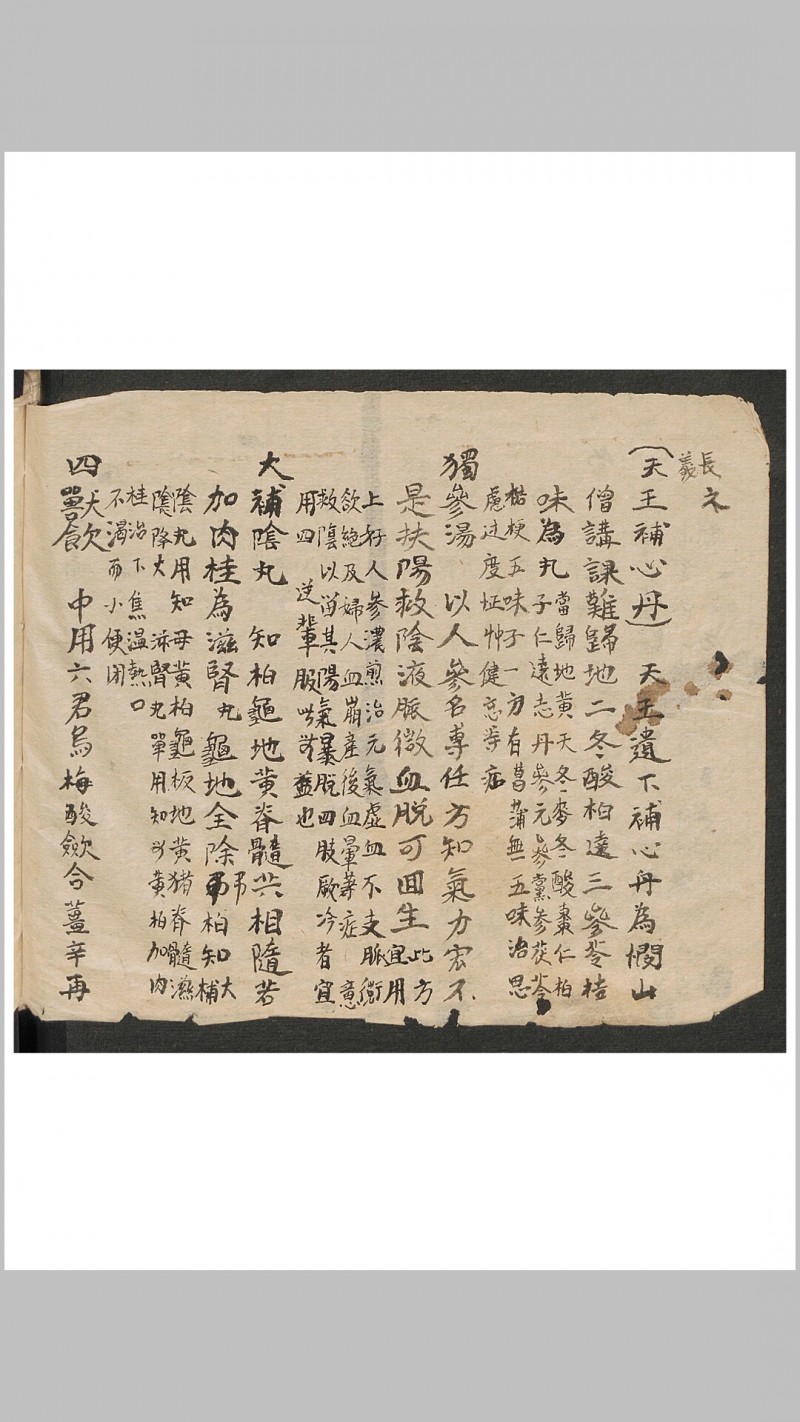 長
義
天王補心丹 天王遺下補心丹為憫山
僧講課難歸地二冬酸柏遠三參苓桔
味為丸 當歸地黃天冬麥冬酸棗仁柏
子仁遠志丹參元參黨參茯苓
桔梗五味子一方有菖蒲無五味治思
慮过度怔忡健忘等症
獨參湯 以人參名專任方知氣力宏不
是扶陽救陰液脈微血脫可回生 此方
宜用
上好人參濃煎治元氣虛血不支脈微
欲絕及婦人血崩產後血暈等症 意
救陰以留其陽氣暴脫四肢厥冷者宜
用四逆輩服此無益也
大補陰丸 知柏龜地黃脊髓共相隨若
加肉桂為滋腎丸龜地全除柏知 大
補
陰丸用知母黃柏龜板地黃猪脊髓滋
陰降火 滋腎丸單用知母黃柏加肉
桂治下焦溫熱口
不渴而小便閉
四獸飲 中用六君烏梅酸斂合薑辛再